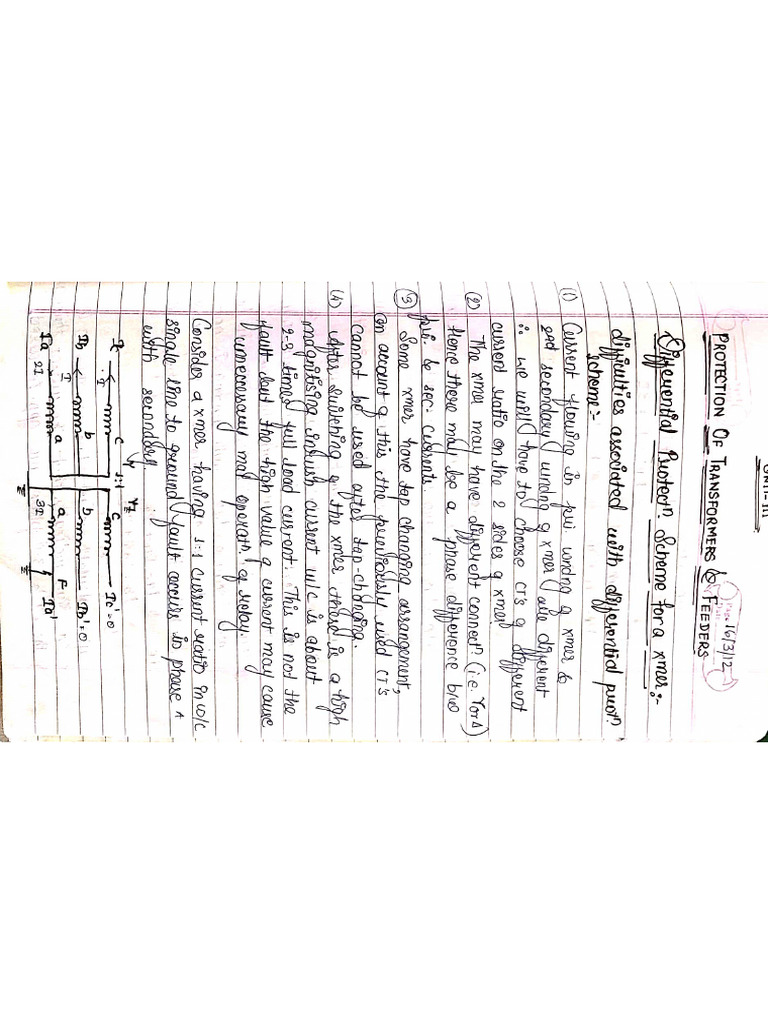 UNIT-III
16/3/12
PROTECTION OF TRANSFORMERS & FEEDERS
Differential Protectⁿ Scheme for a xmer:-
difficulties associated with differential protⁿ
scheme:-
(1) Current flowing in pri winding of xmer &
and secondary winding of xmer are different
∴ we will have to choose CT's of different
current ratio on the 2 sides of xmer
(2) The xmer may have different connectⁿ (i.e. Y or Δ)
Hence there may be a phase difference b/w
pri. & sec. currents.
(3) Some xmer have tap changing arrangement,
on account of this the previously used CT's
cannot be used after tap-changing.
(4) After switching of the xmer there is a high
magnitising inrush current w/c is about
2-3 times full load current. This is not the
fault but the high value of current may cause
unneccesary mal operatⁿ of relay.
Consider a xmer having 1:1 current ratio in w/c
single line to ground fault occurs in phase A
with secondary
Ic I c 1:1 Y/Y c Ic'=0
Ib I b b Ib'=0
Ia 2I a a 3I F Ia'